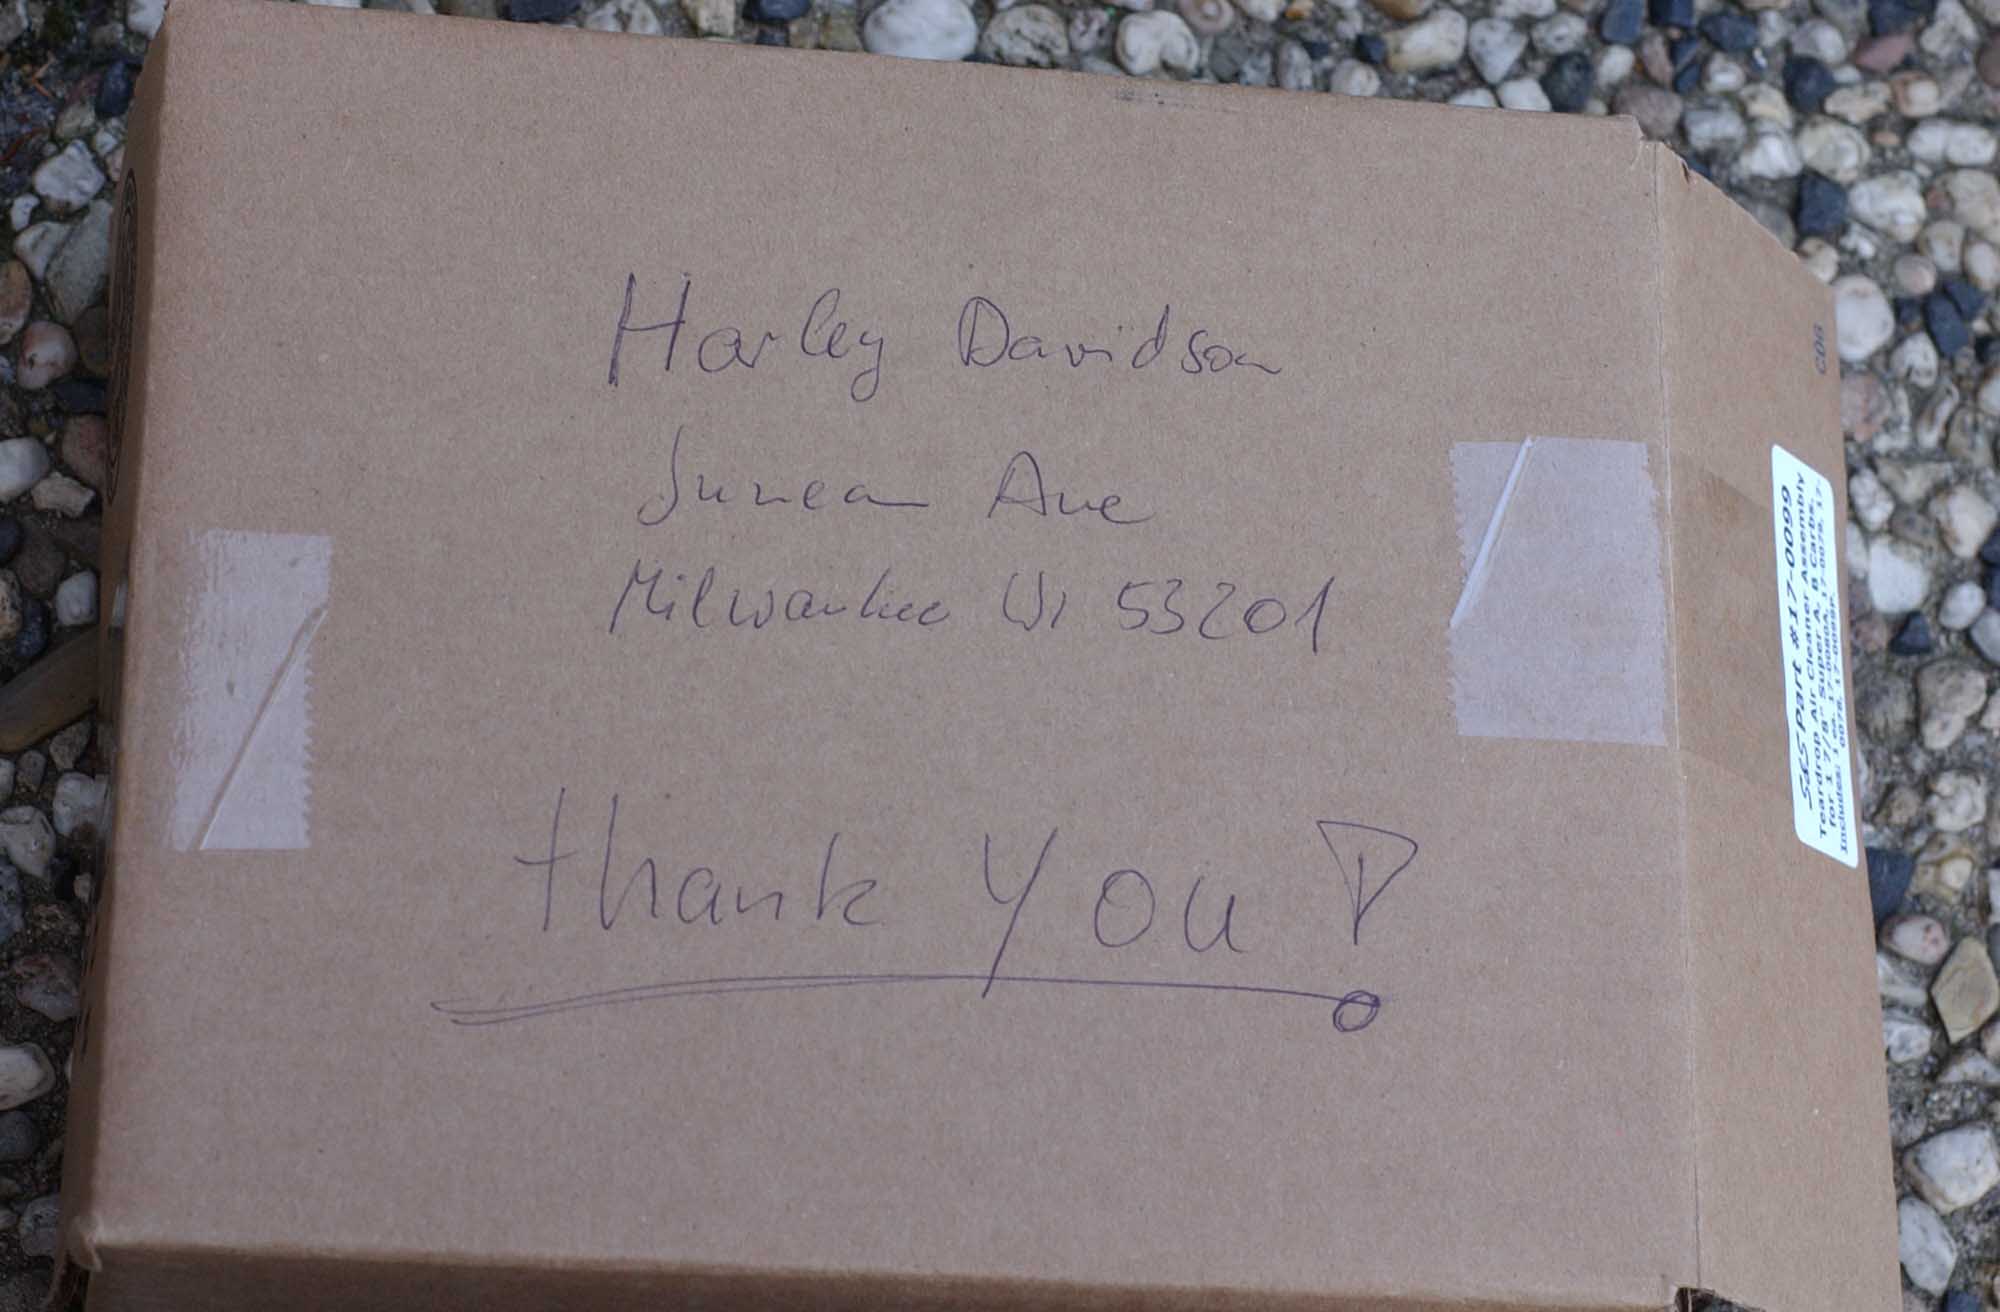 Harley Davidson
Junean Ave
Milwaukee Wi 53201
thank you!
S&S Part #17-0099
Teardrop Air Cleaner Assembly
for 1 7/8" Super A, B Carbs.
Includes: 1 ea. 17-0080A, 17-0079, 17-
0078, 17-0098P.